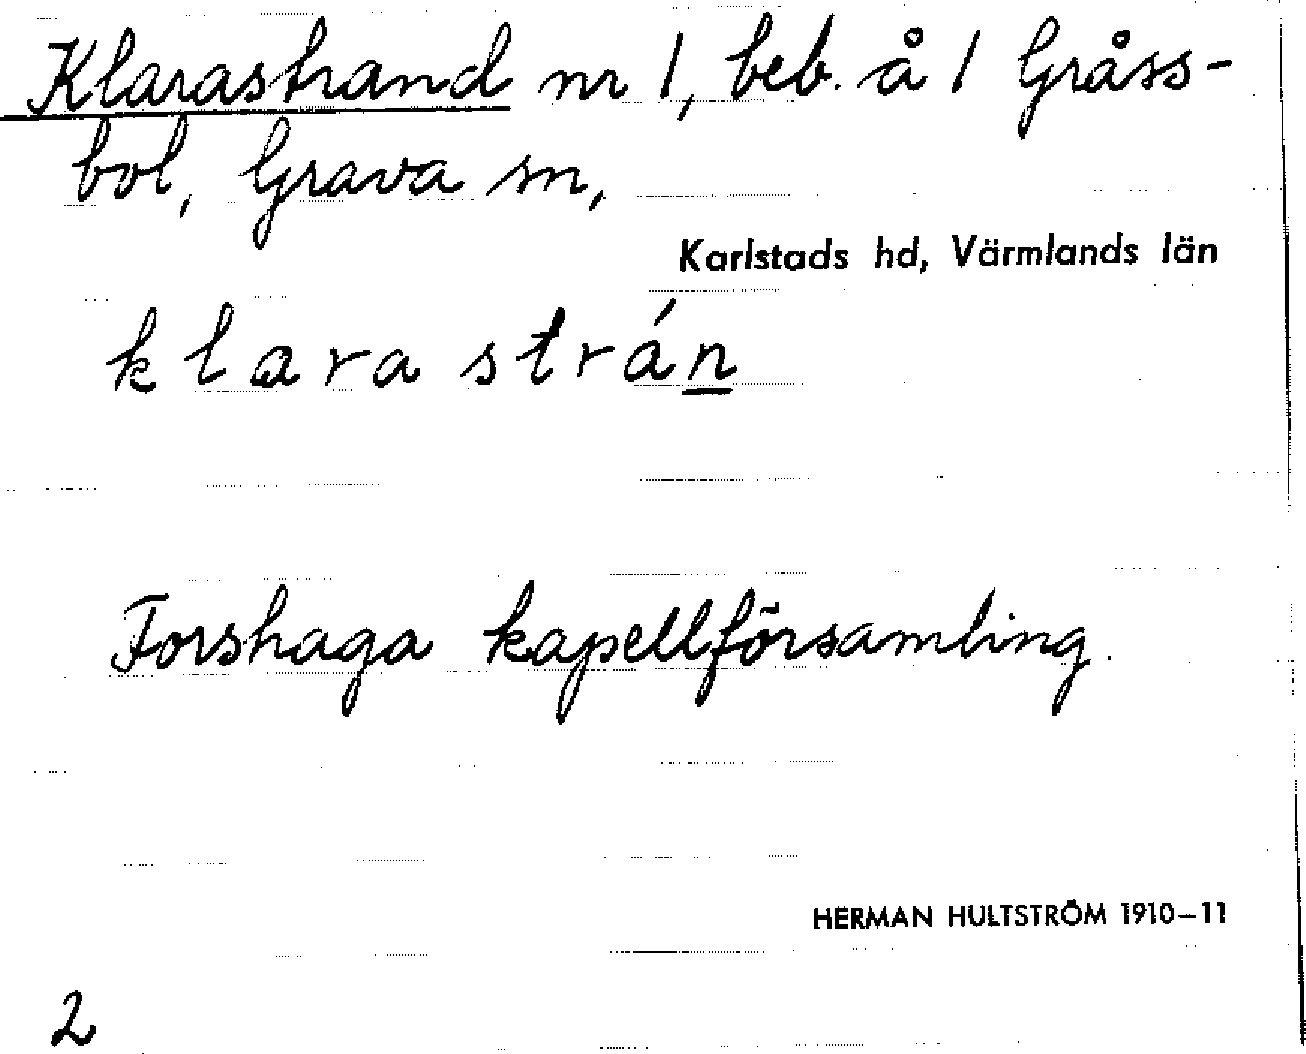 Klarastrand nr 1, beb. å 1 Gråss-
bol, Grava sn,
Karlstads hd, Värmlands län
klarastrán
Forshaga kapellförsamling.
HERMAN HULTSTRÖM 1910–11
2